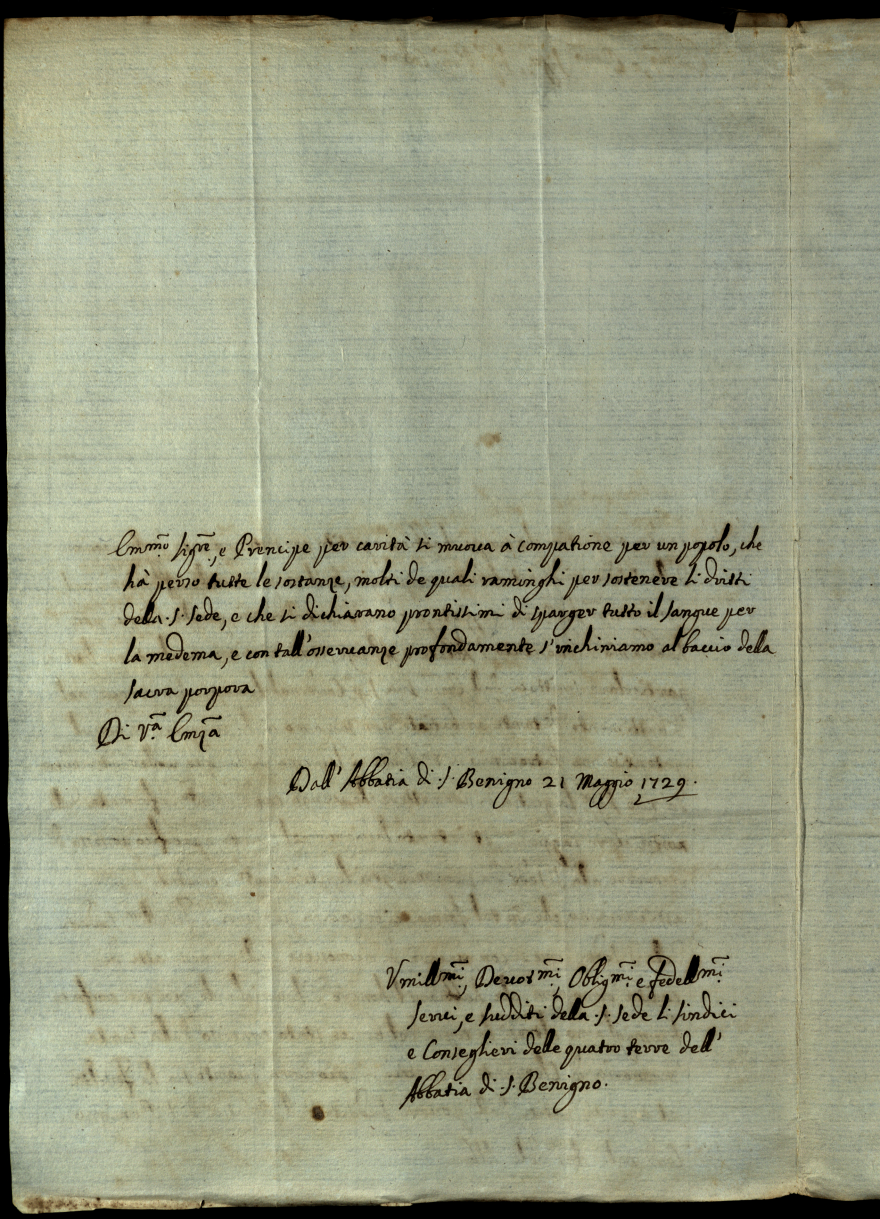 Emmo Sigre, e Prencipe per carità si muova à compatione per un popolo, che
hà perso tutte le sostanze, molti de quali raminghi per sostenere li dritti
della S. Sede, e che si dichiarano prontissimi di sparger tutto il sangue per
la medema, e con tall'osservanze profondamente s'inchiniamo al baccio della
sacra porpora
Di Va Emza
Dall'Abbatia di S. Benigno 21 Maggio 1729.
Umillmi, Devotmi, Obligmi e fedellmi
servi, e sudditi della S. Sede li sindici
e Conseglieri delle quatro terre dell'
Abbatia di S. Benigno.